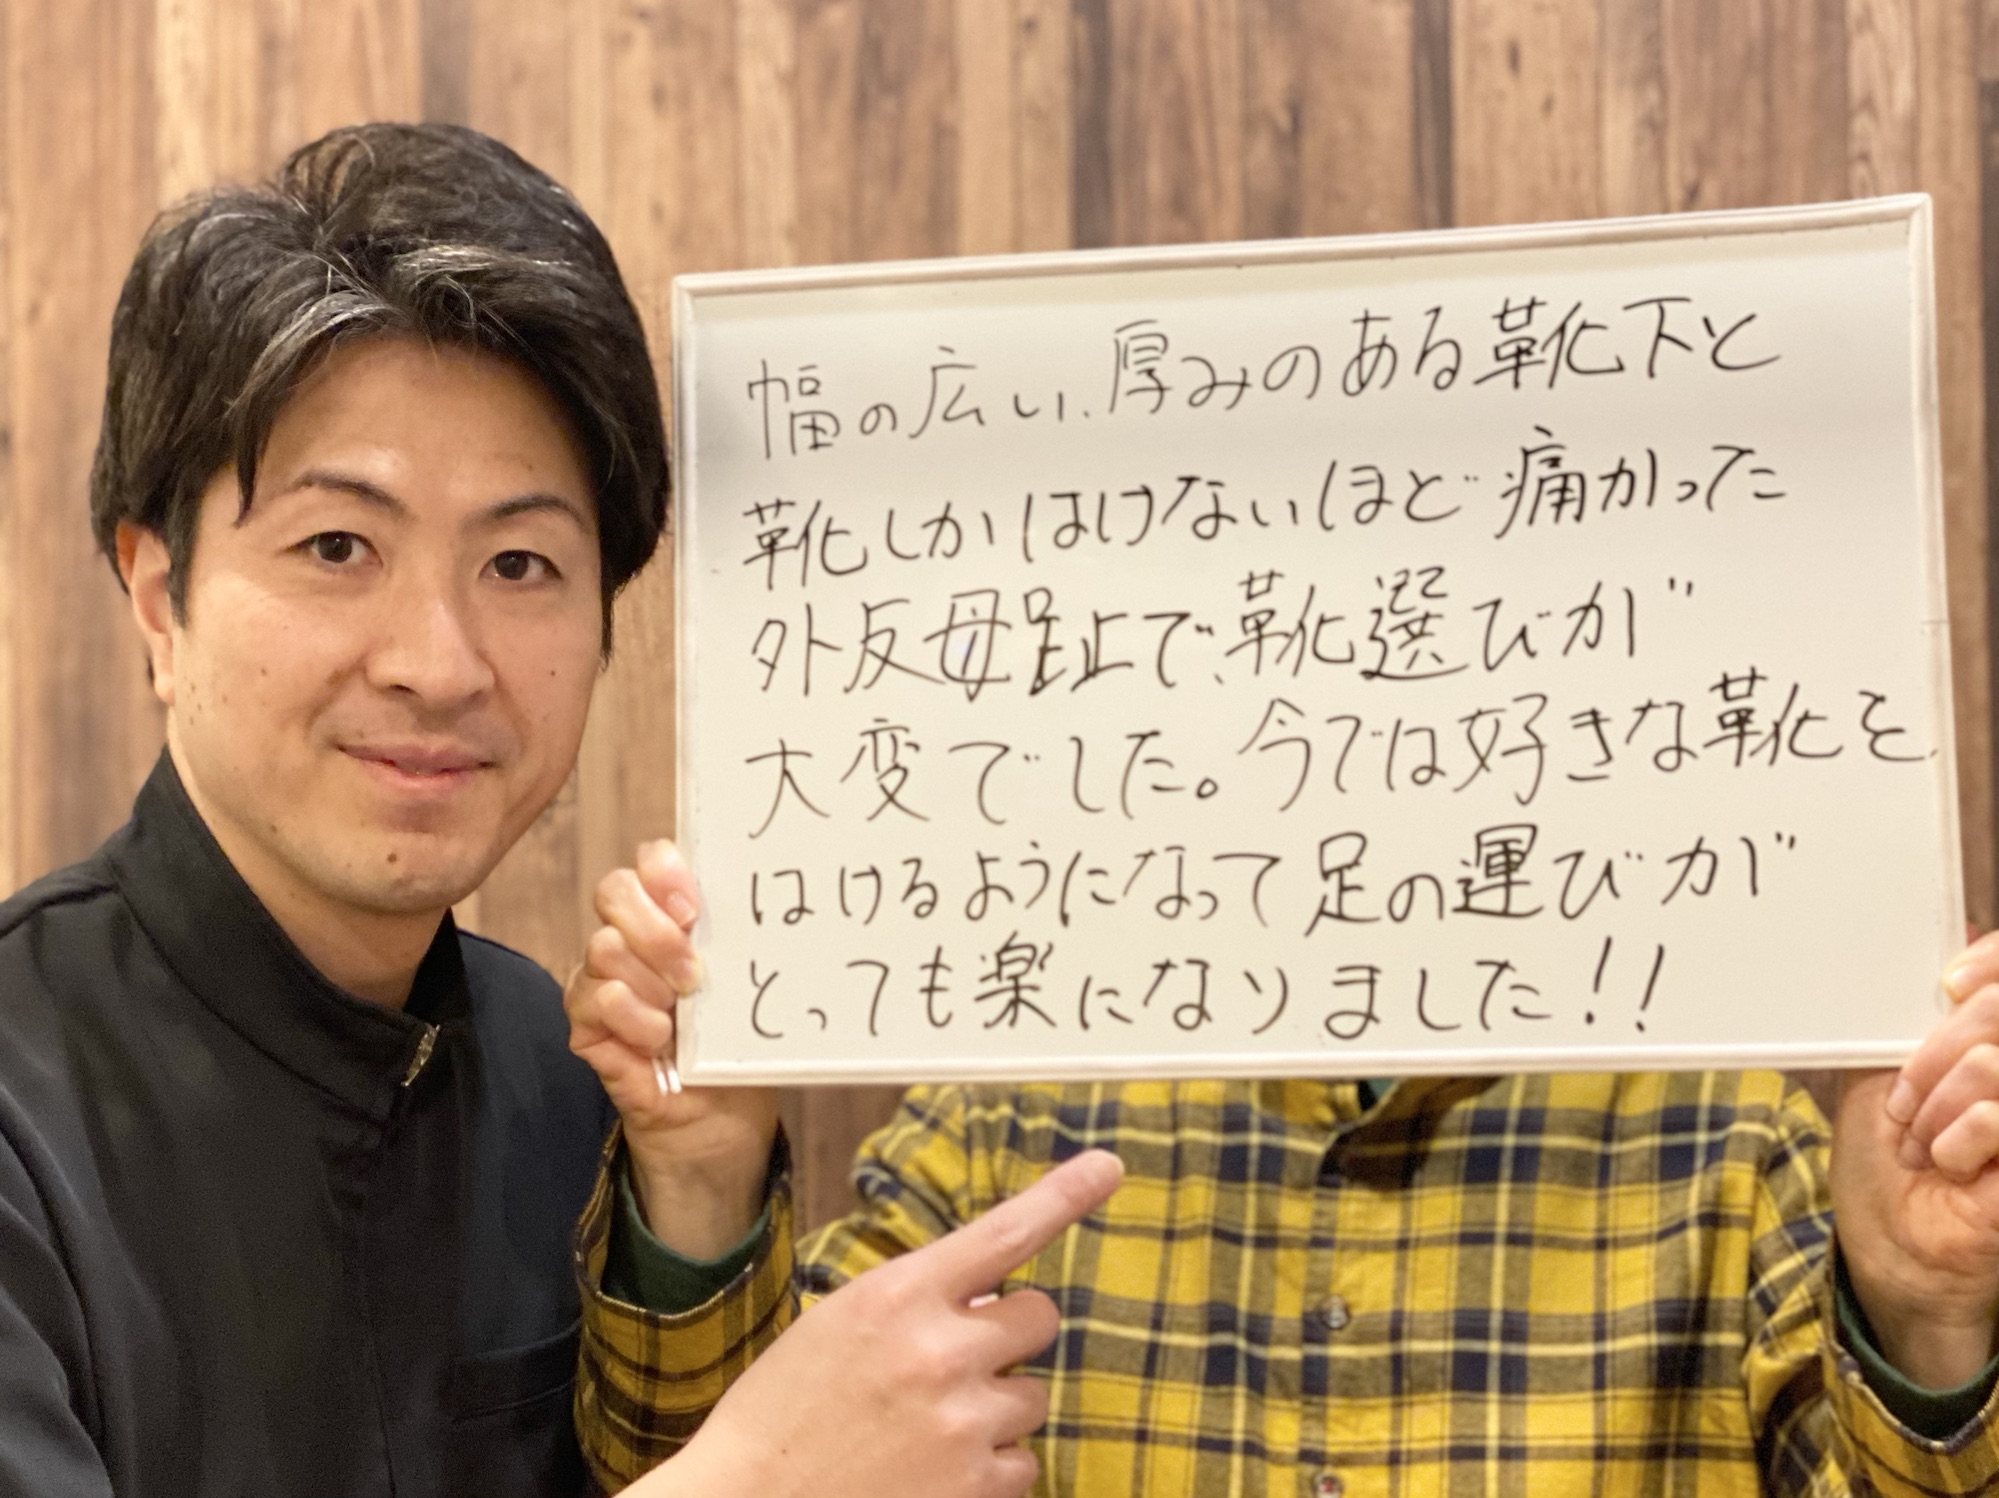 幅の広い、厚みのある靴下と
靴しかはけないほど痛かった
外反母趾で、靴選びが
大変でした。今では好きな靴を
はけるようになって足の運びが
とっても楽になりました!!